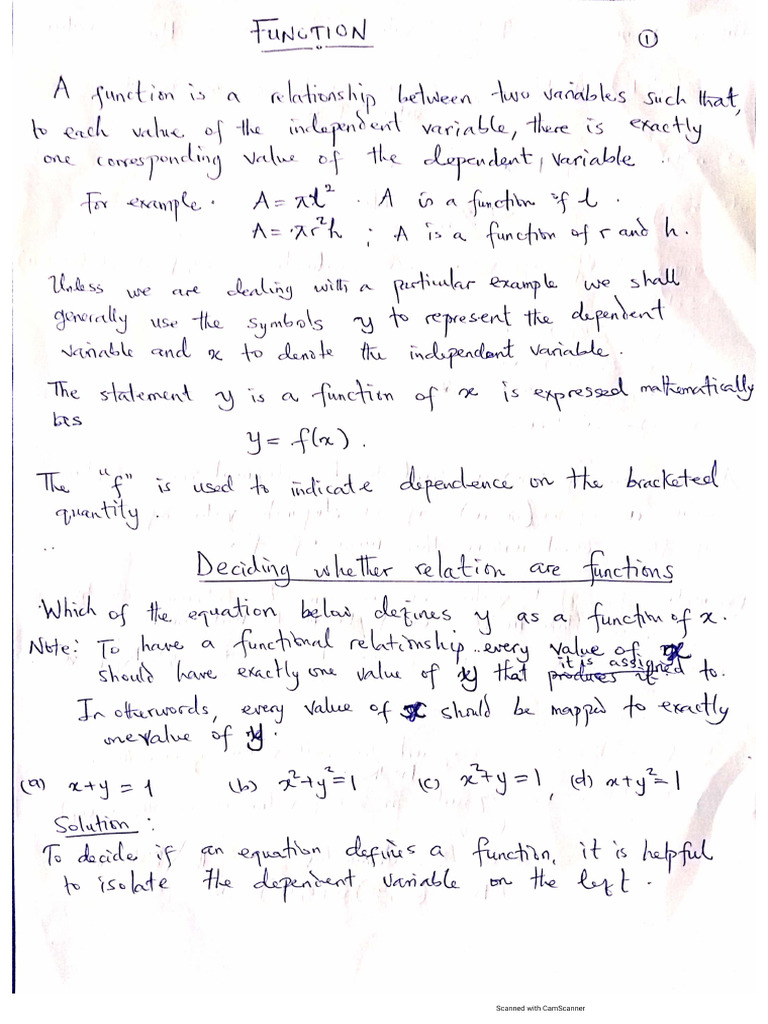 FUNCTION
①
A function is a relationship between two variables such that,
to each value of the independent variable, there is exactly
one corresponding value of the dependent variable.
For example. A = πl². A is a function if l.
A = πr²h ; A is a function of r and h.
Unless we are dealing with a particular example we shall
generally use the symbols y to represent the dependent
variable and x to denote the independent variable.
The statement y is a function of x is expressed mathematically
as
y = f(x).
The "f" is used to indicate dependence on the bracketed
quantity.
Deciding whether relation are functions
Which of the equation below defines y as a function of x.
Note: To have a functional relationship every value of x
should have exactly one value of y that it is assigned to.
In otherwords, every value of x should be mapped to exactly
one value of y.
(a) x+y = 1 (b) x²+y²=1 (c) x²+y=1, (d) x+y²=1
Solution:
To decide if an equation defines a function, it is helpful
to isolate the dependent variable on the left.
Scanned with CamScanner